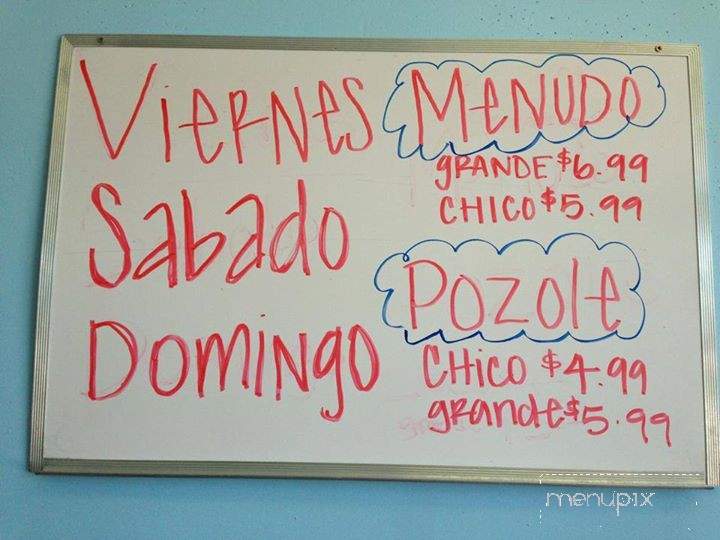 ViERNES
Sabado
DOMiNgO
MENUDO
gRANDE $6.99
CHICO $5.99
POZOLE
CHiCO $4.99
grande $5.99
menupix